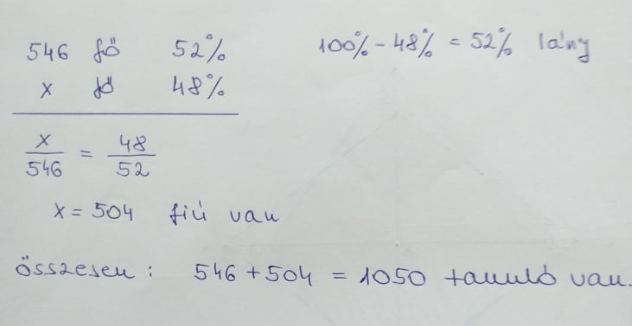 546 fő 52% 100% - 48% = 52% lány
x fő 48%
x/546 = 48/52
x = 504 fiú van
összesen : 546 + 504 = 1050 tanuló van.